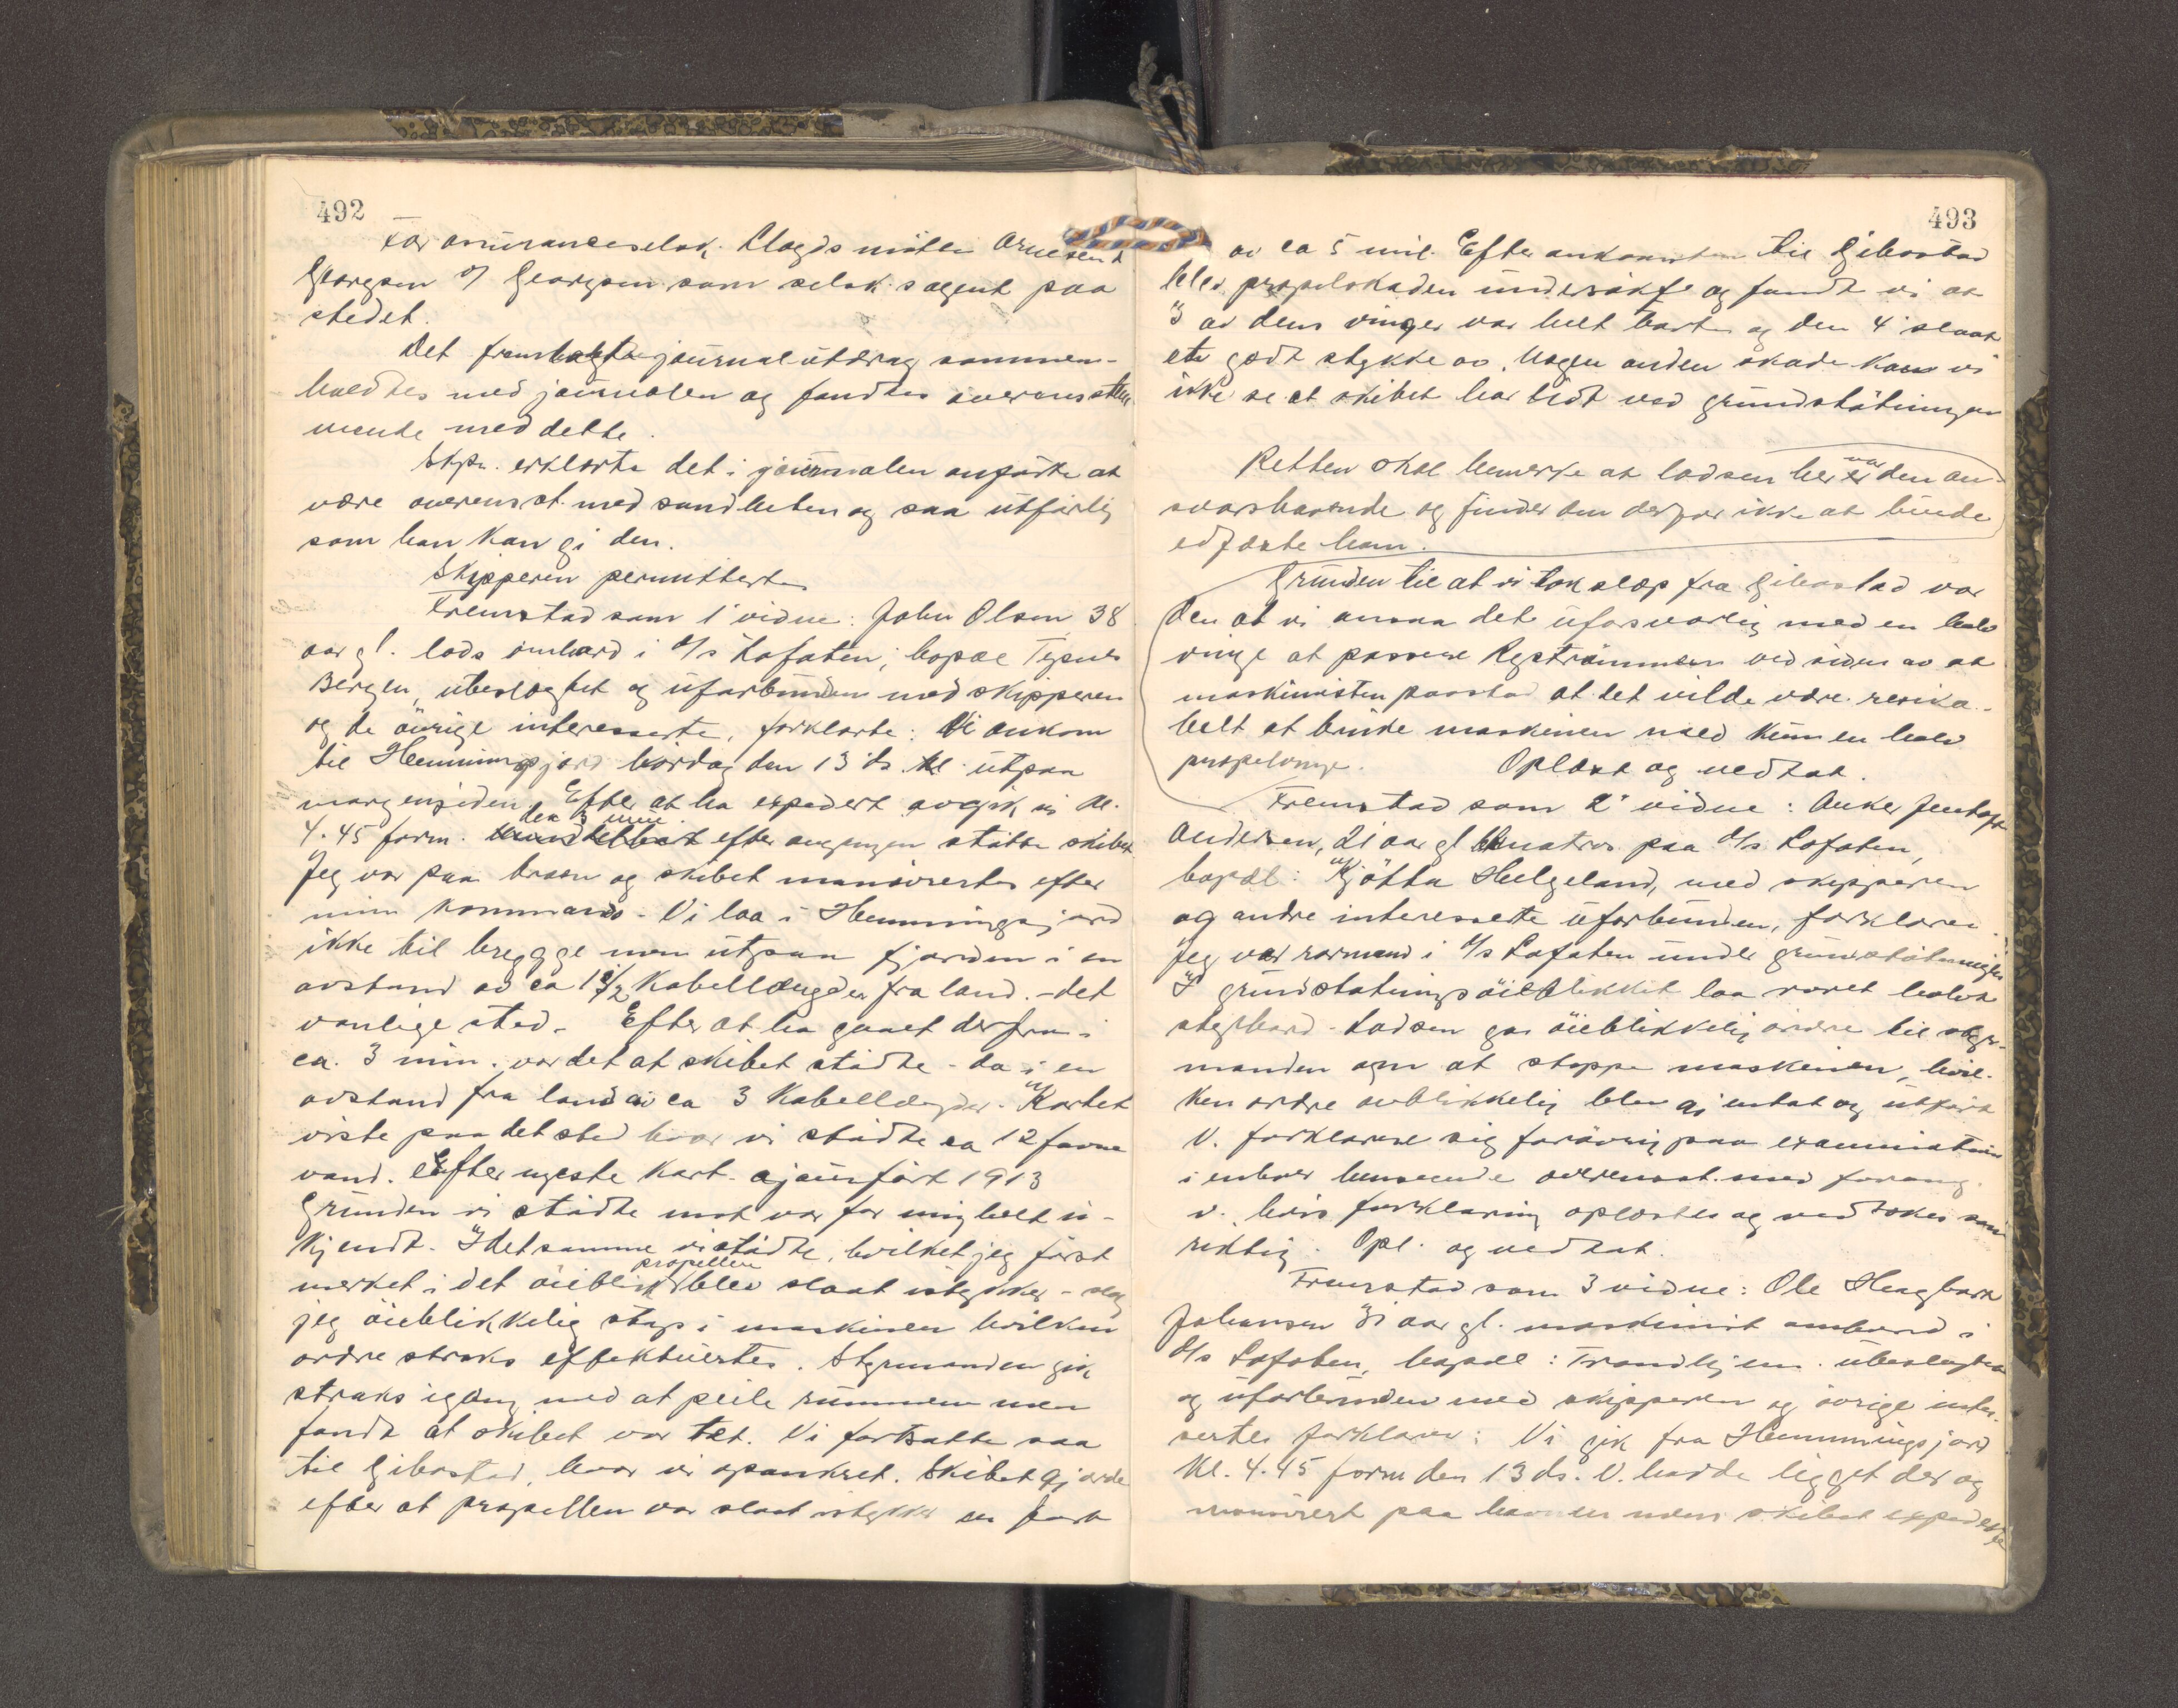 492
For assuranceselsk. Lloyds mötte Arnesen &
Georgsen v/ Georgsen som selsk. agent paa
stedet.
Det frembragte journalutdrag sammen-
holdtes med journalen og fandtes overensstem
mende med dette.
Skpr. erklærte det i journalen anförte at
være overenst. med sandheten og saa utförlig
som han kan gi den.
Skipperen permitteres
Fremstod som 1' vidne: John Olsen 38
aar gl. lods ombord i D/s Lofoten, bopæl
Bergen, ubeslægtet og uforbunden med skipperen
og de övrige interesserte, forklarte: Vi ankom
til Hemmingsjord lördag den 13 ds. kl. utpaa
morgensiden. Efter at ha expedert avgik vi kl.
4.45 form. ca 3 min. efter avgangen stötte skibet
Jeg var paa broen og skibet manövrertes efter
min kommando. Vi laa i Hemmingsjord
ikke til brygge men utpaa fjorden i en
avstand av ca 1 1/2 kabellængder fra land. - det
vanlige sted. Efter at ha gaaet derfra i
ca. 3 min. var det at skibet stödte - da i en
avstand fra land av ca 3 kabellængder. Kartet
viste paa det sted hvor vi stödte ca 12 favne
vand. Efter nyeste kart. ajourfört 1913
Grunden vi stödte mot var for mig helt u-
kjendt. I det samme vi stödte, hvilket jeg först
merket i det öieblik propellen blev slaat istykker - slog
jeg öieblikkelig stop i maskinen hvilken
ordre straks effektuertes. Styrmanden gik
straks igang med at peile rummene men
fandt at skibet var tæt. Vi fortsatte saa
til Gibostad, hvor vi opankret. Skibet gjorde
efter at propellen var slaat istykker en fart
493
av ca 5 mil. Efter ankomsten til Gibostad
blev propelskaden undersökt og fandt vi at
3 av dens vinger var helt borte og den 4' slaat
et godt stykke av. Nogen anden skade kan vi
ikke se at skibet har lidt ved grundstötningen
Retten skal bemerke at lodsen her var den an-
svarshavende og finder den derfor ikke at burde
edfæste ham.
Grunden til at vi tok slæp fra Gibostad var
den at vi ansaa det uforsvarlig med en halv
vinge at passere Rystrømmen ved siden av at
maskinisten paastod at det vilde være resika-
belt at bruke maskinen med kun en halv
propelvinge. Oplæst og vedtat.
Fremstod som 2' vidne: Anker Jentoft
Andersen, 21 aar gl. matros paa D/s Lofoten,
bopæl: Tjötta Helgeland, med skipperen
og andre interesserte uforbunden, forklarer:
Jeg var rormand i D/s Lofoten under grundstötningen
I grundstötningsöieblikket laa roret halvt
styrbord. Lodsen gav öieblikkelig ordre til styr-
manden om at stoppe maskinen, hvil-
ken ordre öieblikkelig blev gjentat og utfört
V. forklarer sig forövrig paa examination
i enhver henseende overenst. med foreg.
v. hvis forklaring oplæstes og vedtokes som
riktig. Opl. og vedtat.
Fremstod som 3 vidne: Ole Hagbart
Johansen 31 aar gl. maskinist ombord i
D/s Lofoten, bopæl: Trondhjem. ubeslægtet
og uforbunden med skipperen og övrige inter-
serte forklarer: Vi gik fra Hemmingsjord
kl. 4.45 form den 13 ds. V. hadde ligget der og
manövrert paa havnen mens skibet expederte